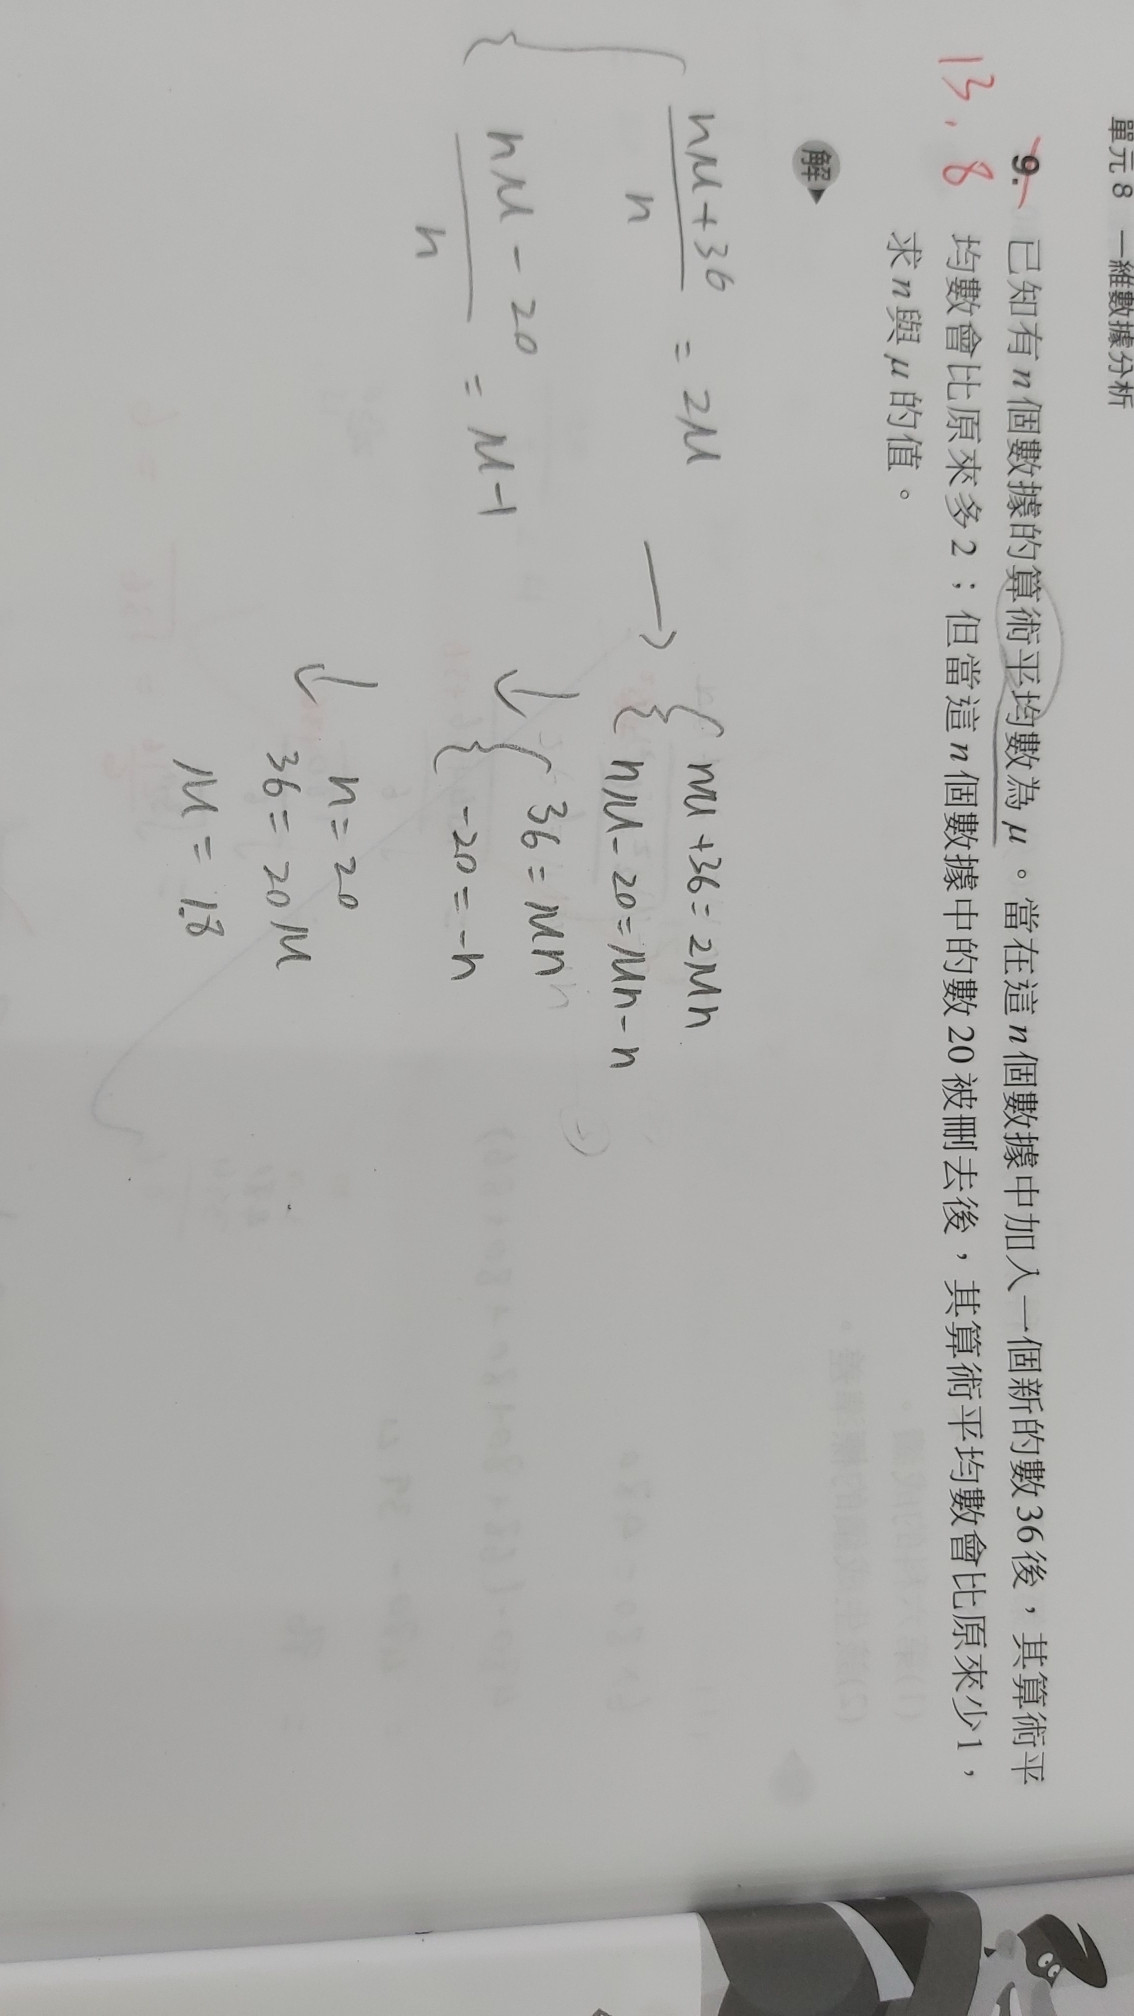 單元8 一維數據分析
9. 已知有n個數據的算術平均數為μ。當在這n個數據中加入一個新的數36後,其算術平
均數會比原來多2;但當這n個數據中的數20被刪去後,其算術平均數會比原來少1,
求n與μ的值。
13, 8
解
nμ+36 / n = 2μ
nμ-20 / n = μ-1
→ { nμ+36=2μn
nμ-20=μn-n
↓ { 36=μn
-20=-n
↓ n=20
36=20μ
μ=1.8